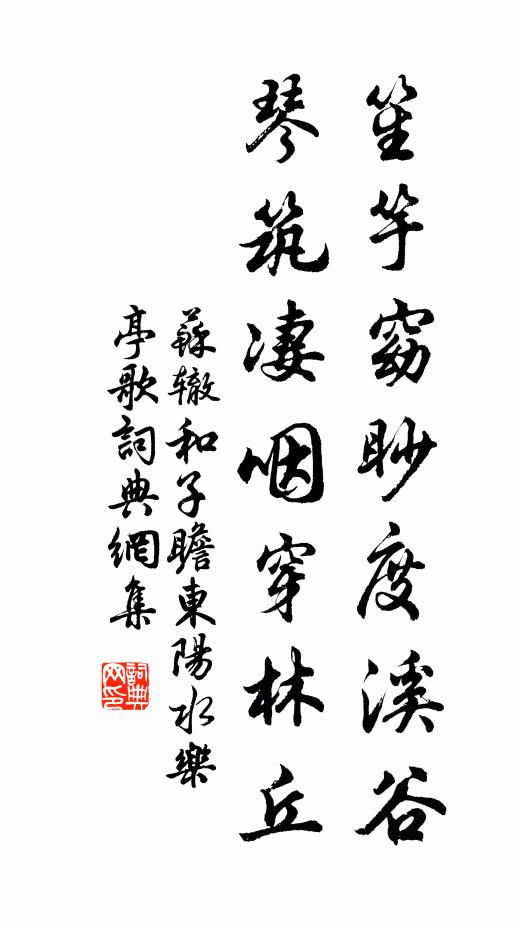 笙竽窈眇度溪谷
琴筑凄咽穿林丘
蘇辙和子瞻東陽水樂
亭歌詞典網集
詞典网印